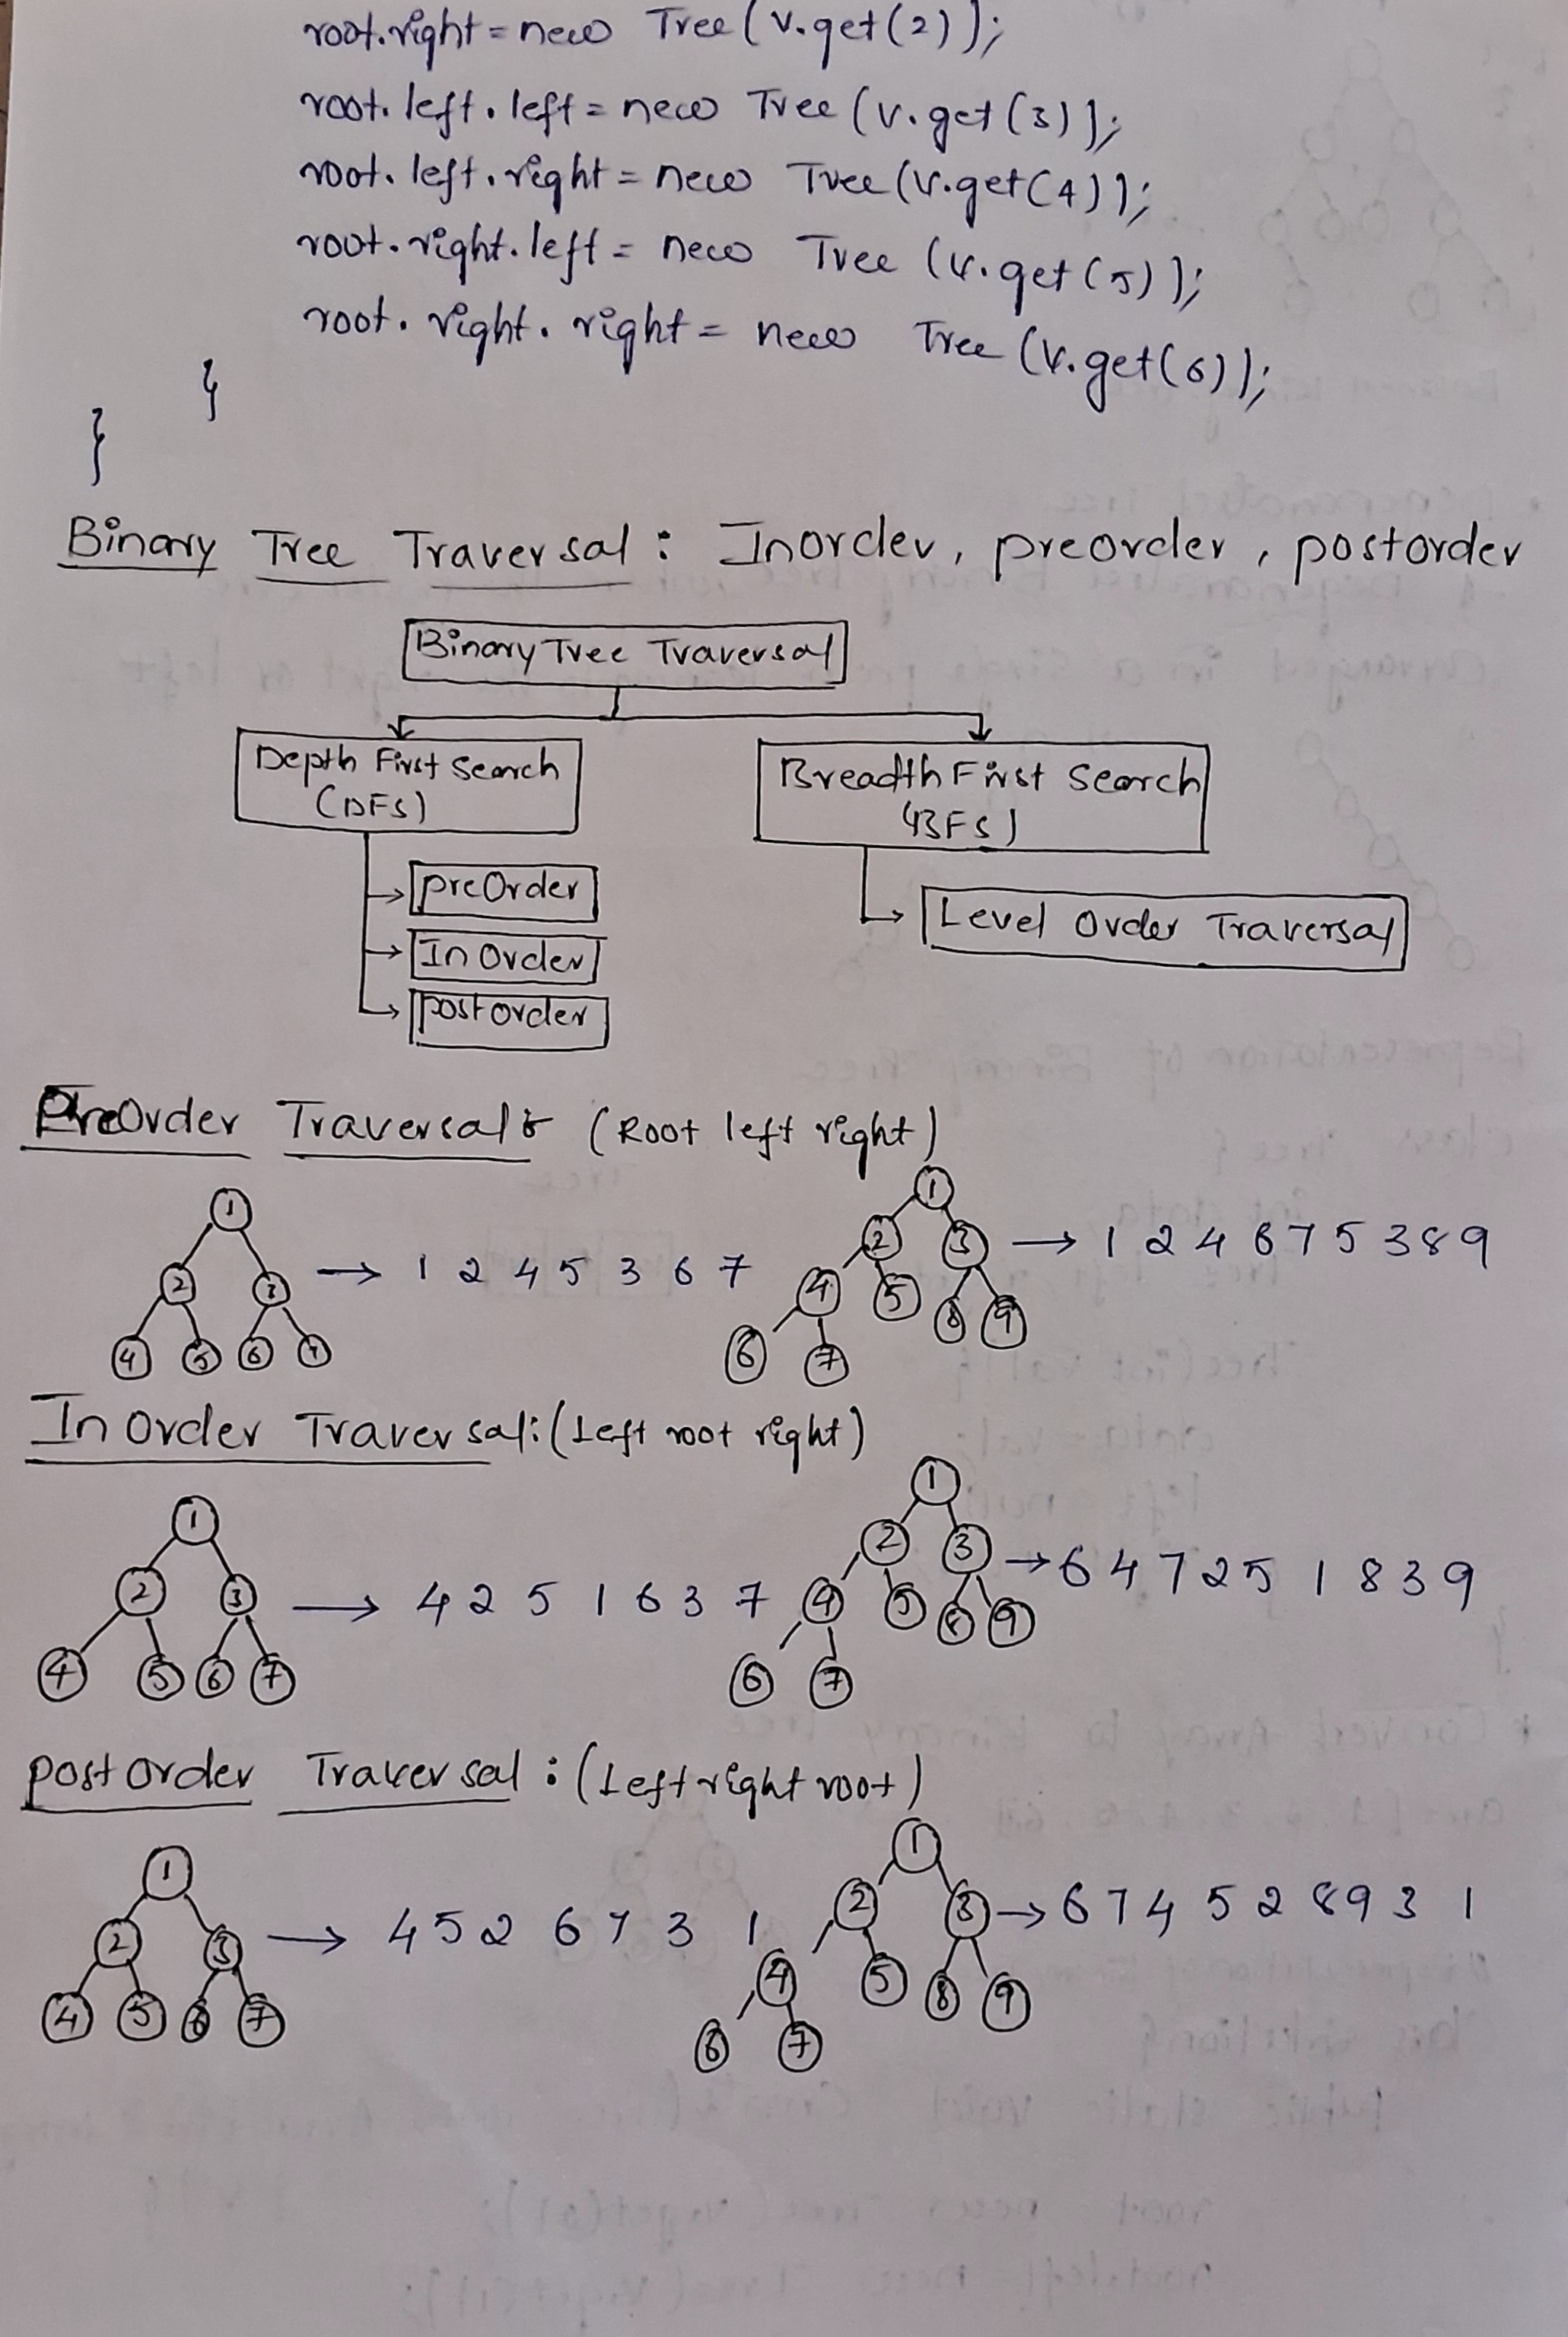 root.right = new Tree(v.get(2));
root.left.left = new Tree(v.get(3));
root.left.right = new Tree(v.get(4));
root.right.left = new Tree(v.get(5));
root.right.right = new Tree(v.get(6));
}
}
Binary Tree Traversal : Inorder, preorder, postorder
Binary Tree Traversal
Depth First Search
(DFS)
Breadth First Search
(BFS)
preOrder
In Order
post order
Level Order Traversal
PreOrder Traversal : (Root left right)
1
2 3
4 5 6 7
→ 1 2 4 5 3 6 7
1
2 3
4 5 8 9
6 7
→ 1 2 4 6 7 5 3 8 9
In Order Traversal : (Left root right)
1
2 3
4 5 6 7
→ 4 2 5 1 6 3 7
1
2 3
4 5 8 9
6 7
→ 6 4 7 2 5 1 8 3 9
post Order Traversal : (Left right root)
1
2 3
4 5 6 7
→ 4 5 2 6 7 3 1
1
2 3
4 5 8 9
6 7
→ 6 7 4 5 2 8 9 3 1